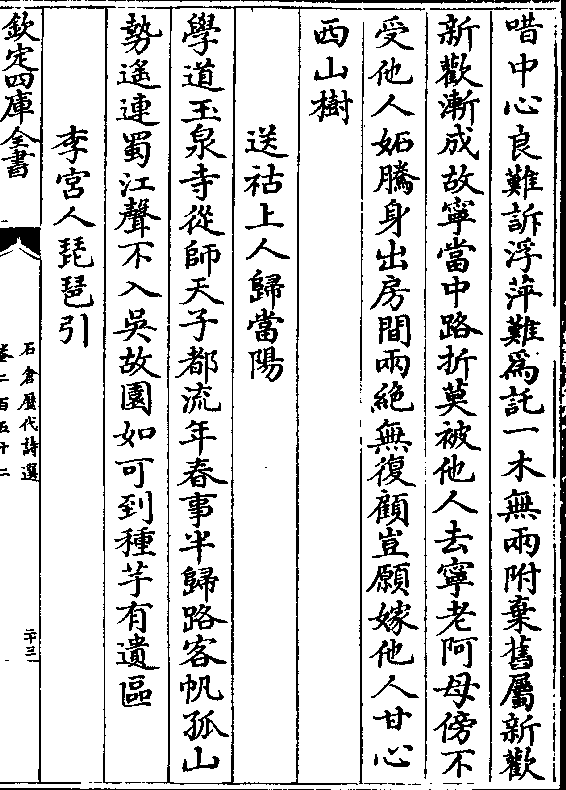 唶中心良難訴浮萍難爲託一木無兩附棄舊屬新歡
新歡漸成故寧當中路折莫被他人去寧老阿母傍不
受他人妬騰身出房間兩絶無復顧豈願嫁他人甘心
西山樹
送祜上人歸當陽
學道玉泉寺從師天子都流年春事半歸路客帆孤山
勢遙連蜀江聲不入吳故園如可到種芋有遺區
李宮人琵琶引
欽定四庫全書
石倉歷代詩選
卷二百五十二
二十三